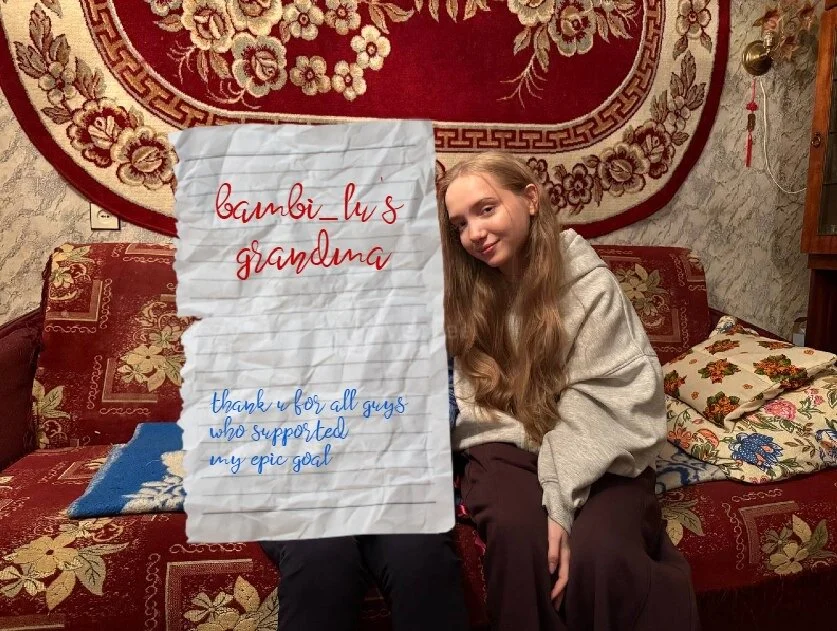 bambi_lu's
grandma
thank u for all guys
who supported
my epic goal